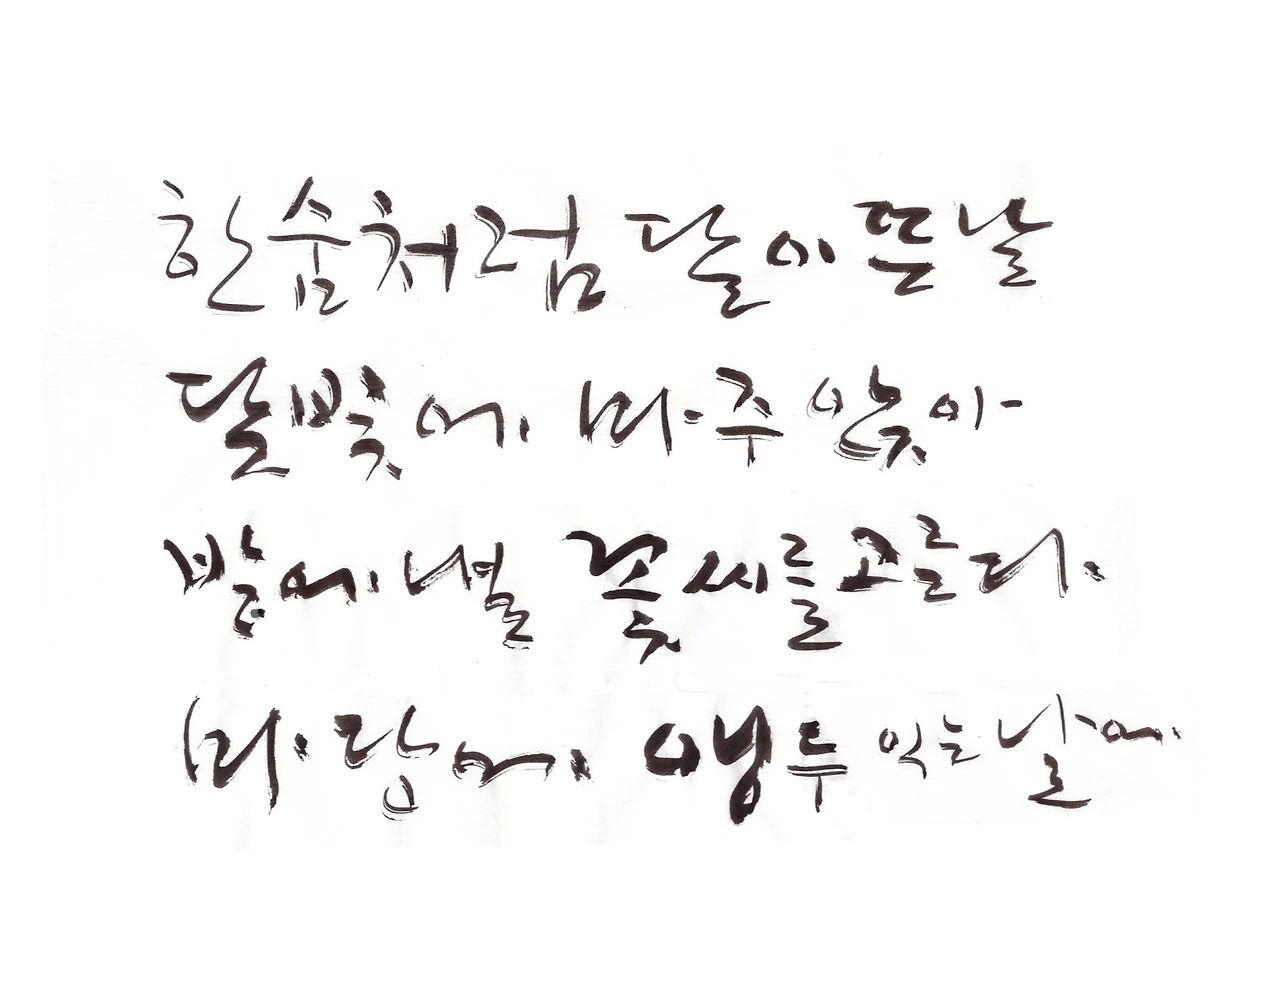 한숨처럼 달이 뜬 날
달빛에 마주 앉아
밤에 낼 꽃씨를 고른다.
마당에 앵두 익는 날에